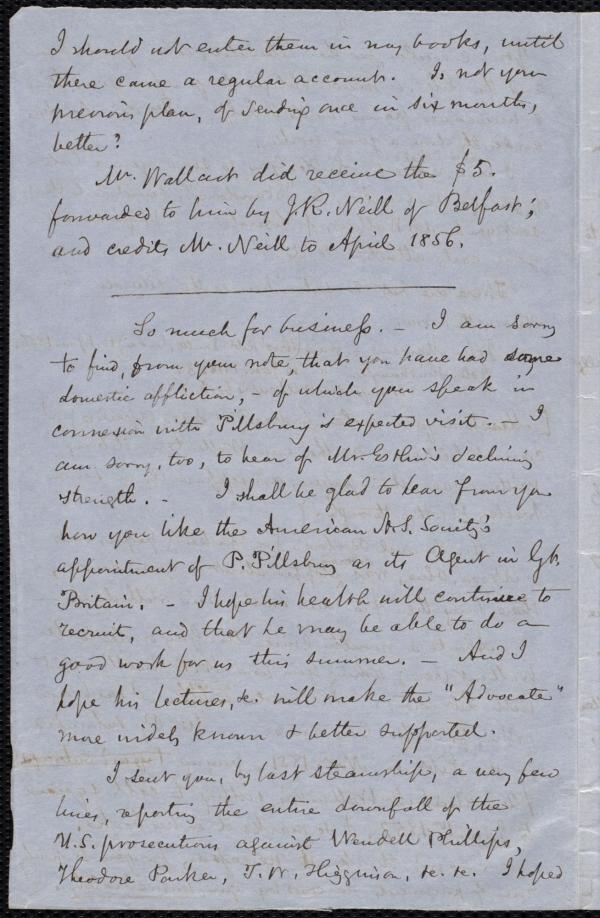 I should not enter them in my books, until
there came a regular account. Is not your
previous plan, of sending once in six months,
better?
Mr. Wallcut did receive the $5.
forwarded to him by J.R. Neill of Belfast;
and credits Mr. Neill to April 1856.
So much for business. – I am sorry
to find, from your note, that you have had some
domestic affliction, – of which you speak in
connexion with Pillsbury's expected visit. – I
am sorry, too, to hear of Mr. Estlin's declining
strength. – I shall be glad to hear from you
how you like the American A.S. Society's
appointment of P. Pillsbury as its Agent in Gt.
Britain. – I hope his health will continue to
recruit, and that he may be able to do a
good work for us this summer. – And I
hope his lectures, &c. will make the "Advocate"
more widely known & better supported.
I sent you, by last steamship, a very few
lines, reporting the entire downfall of the
U.S. prosecutions against Wendell Phillips,
Theodore Parker, T. W. Higginson, &c. &c. I hoped